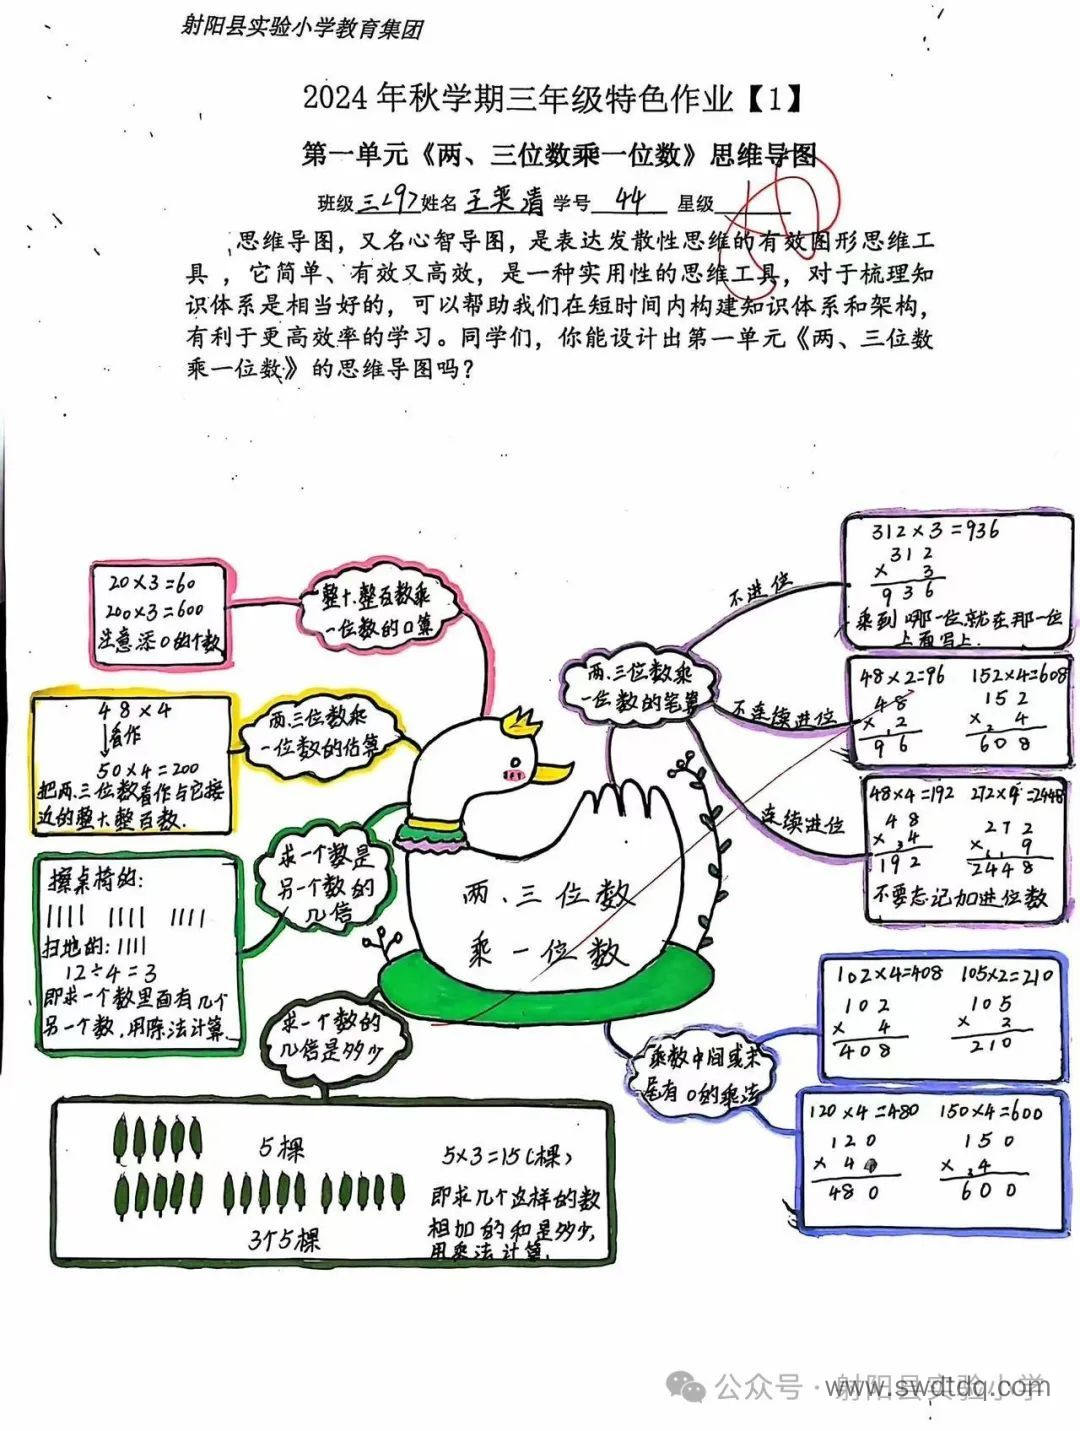 射阳县实验小学教育集团
2024年秋学期三年级特色作业【1】
第一单元《两、三位数乘一位数》思维导图
班级三<9>姓名 学号44 星级
思维导图，又名心智导图，是表达发散性思维的有效图形思维工
具，它简单、有效又高效，是一种实用性的思维工具，对于梳理知
识体系是相当好的，可以帮助我们在短时间内构建知识体系和架构，
有利于更高效率的学习。同学们，你能设计出第一单元《两、三位数
乘一位数》的思维导图吗？
20×3=60
200×3=600
注意添0的个数
整十、整百数乘
一位数的口算
48×4
看作
50×4=200
把两、三位数看作与它接
近的整十、整百数.
两、三位数乘
一位数的估算
擦桌椅的:
扫地的:
12÷4=3
即求一个数里面有几个
另一个数,用除法计算.
求一个数是
另一个数的
几倍
求一个数的
几倍是多少
5棵
3个5棵
5×3=15(棵)
即求几个这样的数
相加的和是多少,
用乘法计算.
两、三位数
乘一位数
两、三位数乘
一位数的笔算
不进位
312×3=936
312
× 3
936
乘到哪一位,就在那一位
上面写上.
不连续进位
48×2=96 152×4=608
48
×₁2
96
152
×₂ 4
608
连续进位
48×4=192 272×9=2448
48
×₃4
192
272
×₆₁9
2448
不要忘记加进位数
乘数中间或末
尾有0的乘法
102×4=408 105×2=210
102
× 4
408
105
× 2
210
120×4=480 150×4=600
120
× 4
480
150
×₂4
600
公众号·射阳县实验小学
www.swdtdq.com